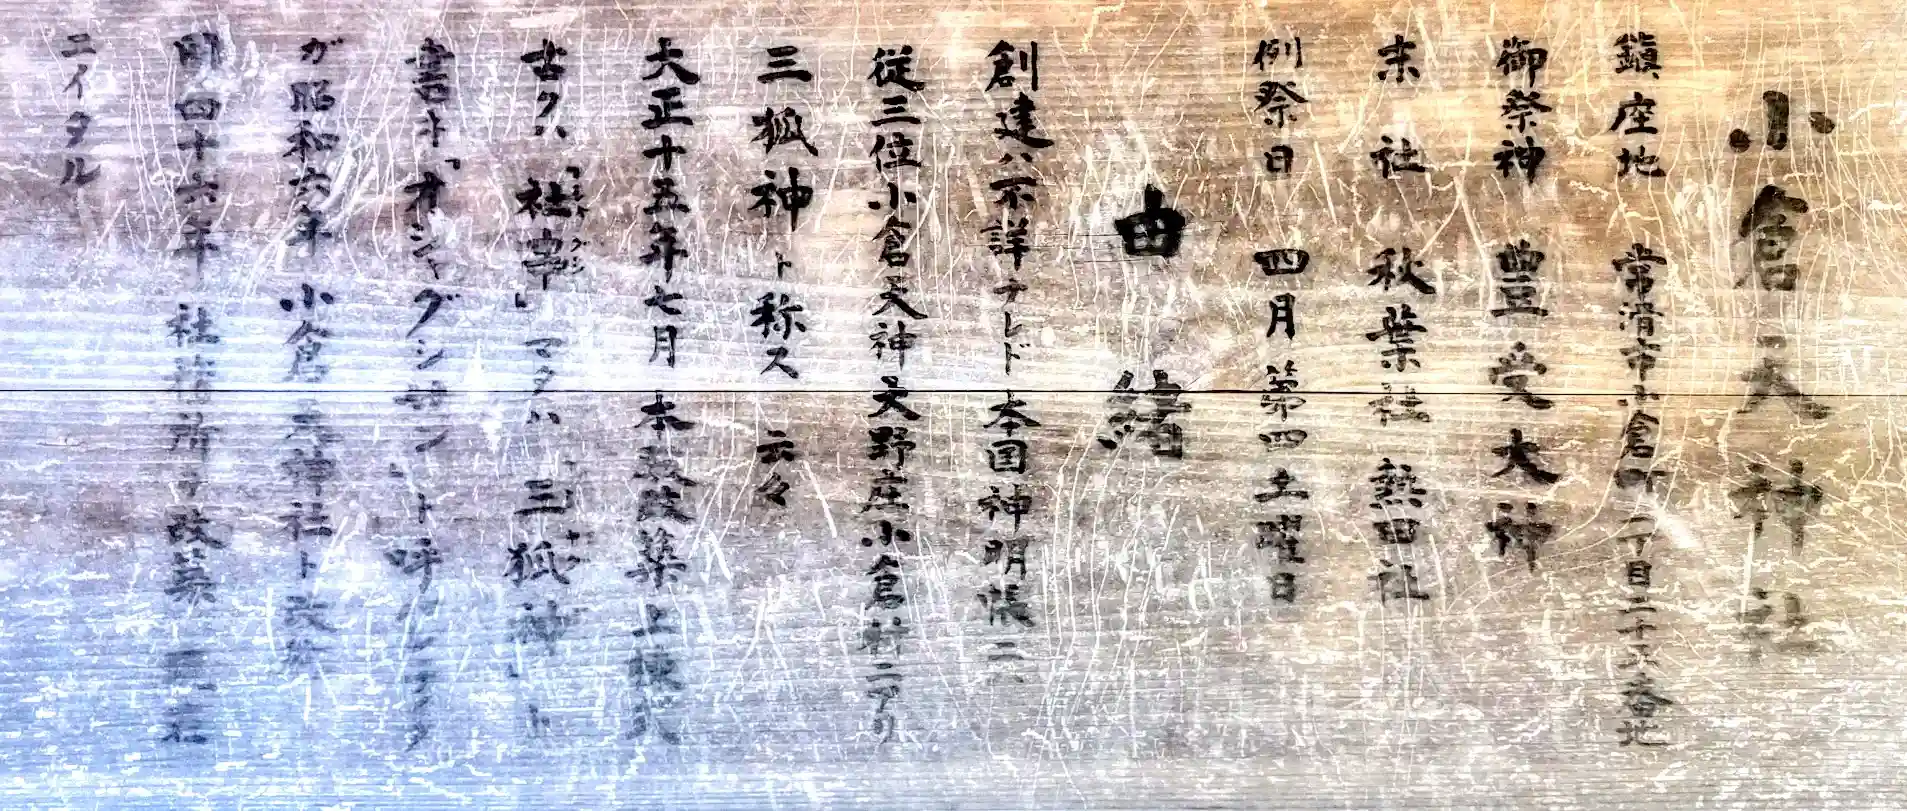 小倉天神社
鎮座地 常滑市小倉町二丁目二十六番地
御祭神 豊受大神
末社 秋葉社 熱田社
例祭日 四月第四土曜日
由緒
創建ハ不詳ナレド本国神明帳ニ
従三位小倉天神天野庄小倉村ニアリ
三狐神ト称ス 云々
大正十五年七月 本殿改築 上棟式
古クハ「社宮」マタハ「三狐神」ト
書キ「オシャグジサン」ト呼
ガ昭和六年 小倉天神社ト改
同四十六年 社務所ヲ改築
ニイタル